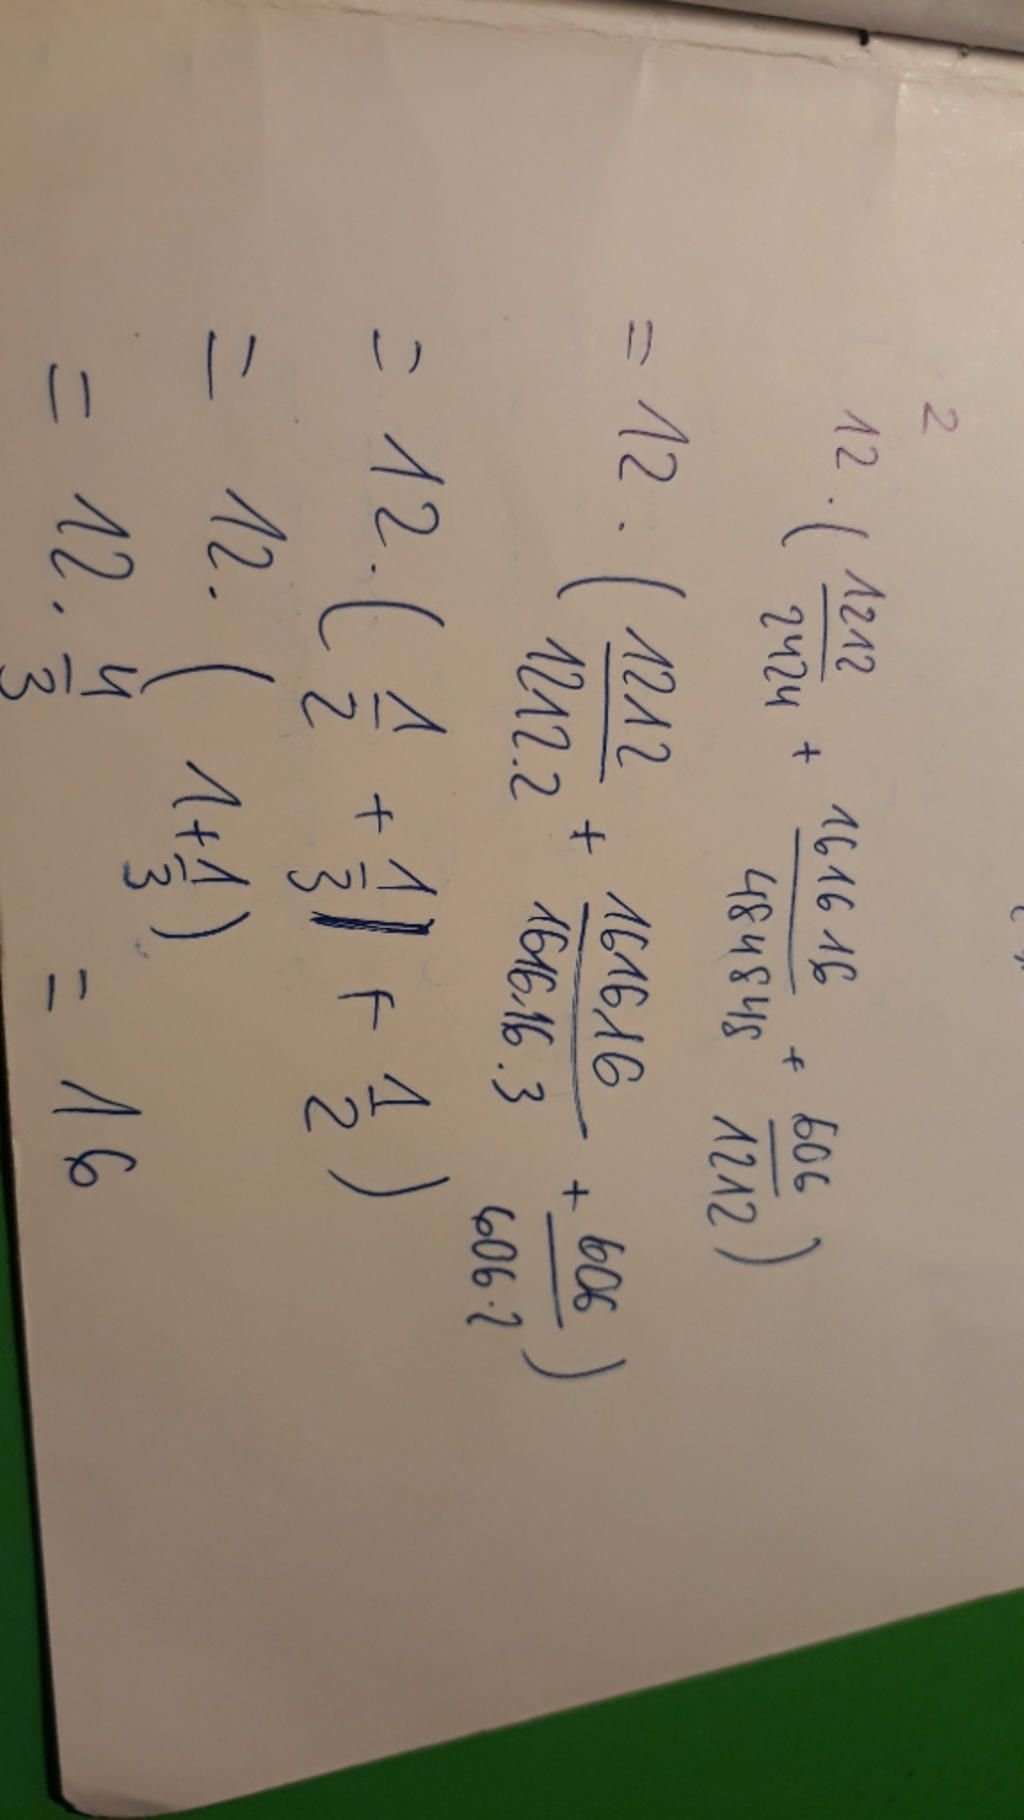 2
12 · ( 1212/2424 + 161616/484848 + 606/1212 )
= 12 · ( 1212/1212.2 + 161616/161616.3 + 606/606.2 )
= 12 . ( 1/2 + 1/3 + 1/2 )
= 12 . ( 1 + 1/3 )
= 12 . 4/3 = 16